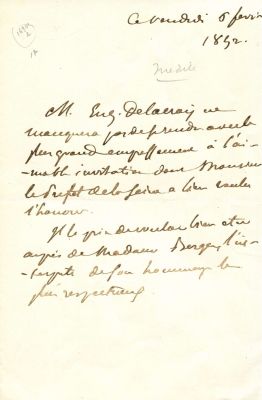 Ce vendredi 6 fevrier
1852.
Inédite
M. Eug. Delacroix ne
manquera pas de se rendre avec le
plus grand empressement à l'ai-
-mable invitation dont Monsieur
le Préfet de la Seine a bien voulu
l'honorer.
Il le prie de vouloir bien être
auprès de Madame Berger, l'in-
-terprète de son hommage le
plus respectueux.